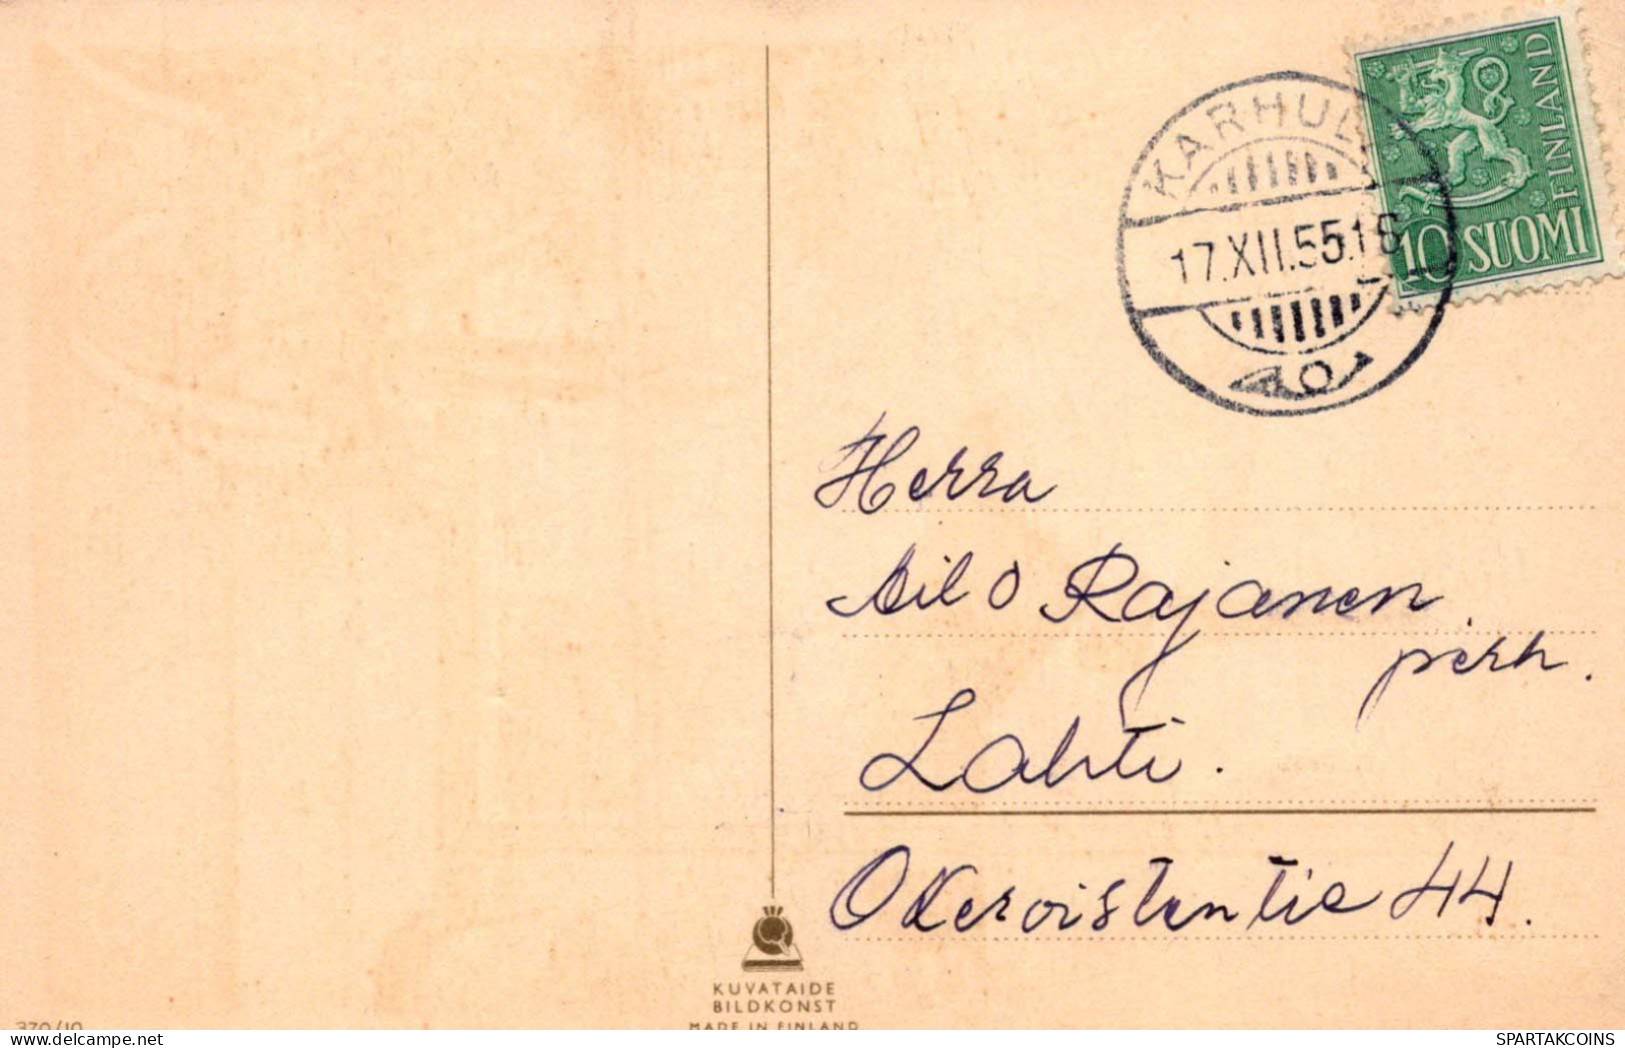 KARHUL
17.XII.55.16
FINLAND
10 SUOMI
Herra
O Rajanen
perh.
Lahti.
44.
KUVATAIDE
BILDKONST
MADE IN FINLAND
370/10
SPARTAKCOINS
delcampe.net